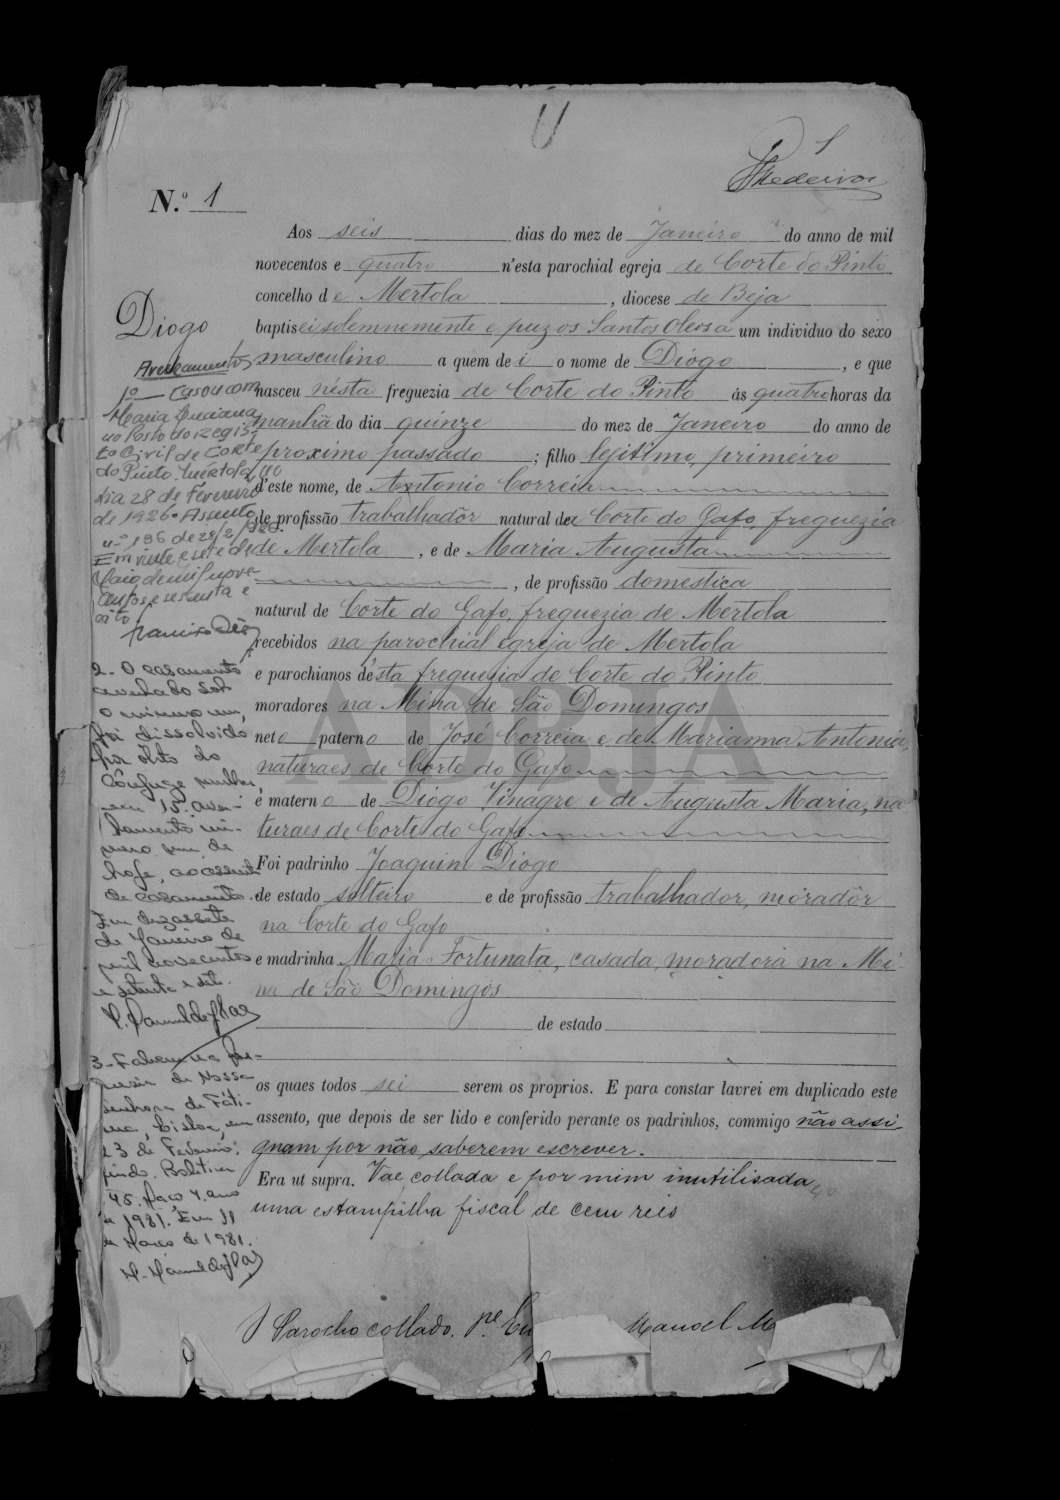 1
Medeiros
N.º 1
Aos seis dias do mez de Janeiro do anno de mil
novecentos e quatro n'esta parochial egreja de Corte do Pinto
concelho de Mertola, diocese de Beja
baptisei solemnemente e puz os Santos Oleos a um individuo do sexo
masculino a quem dei o nome de Diogo, e que
nasceu nésta freguezia de Corte do Pinto ás quatro horas da
manhã do dia quinze do mez de Janeiro do anno de
proximo passado; filho legitimo, primeiro
d'este nome, de Antonio Correia
de profissão trabalhadôr natural da Corte do Gafo, freguezia
de Mertola, e de Maria Augusta
, de profissão domestica
natural de Corte do Gafo, freguezia de Mertola
recebidos na parochial egreja de Mertola
e parochianos d'ésta freguesia de Corte do Pinto
moradores na Mina de São Domingos
neto paterno de José Correia e de Marianna Antonia,
naturaes de Corte do Gafo
e materno de Diogo Vinagre e de Augusta Maria, na
turaes de Corte do Gafo
Foi padrinho Joaquim Diogo
de estado solteiro e de profissão trabalhador, moradôr
na Corte do Gafo
e madrinha Maria Fortunata, casada, moradora na Mi
na de São Domingos
de estado
os quaes todos sei serem os proprios. E para constar lavrei em duplicado este
assento, que depois de ser lido e conferido perante os padrinhos, commigo não assi
gnam por não saberem escrever.
Era ut supra. Vae collada e por mim inutilisada
uma estampilha fiscal de cem reis
O Parocho collado. P.e Manoel
Diogo
Averbamentos
1º Casou com
Maria Luciana
no Posto do Regis-
to Civil de Corte
do Pinto, Mértola, no
dia 28 de Fevereiro
de 1926. Assento
n.º 186 de 28/2/1926.
Em vinte e sete de
Maio de mil nove-
centos e sessenta e
oito
2- O casamento
averbado sob
o numero um,
foi dissolvido
por óbito do
cônjuge mulher,
em 15. aver-
bamento nu-
mero um de
hoje, ao assento
de casamento.
Em dezassete
de Janeiro de
mil novecentos
e setenta e sete.
3- Faleceu na fre-
guesia de Nossa
Senhora de Fáti-
ma, Lisboa, em
23 de Fevereiro
findo. Boletim
45. Maço 4. ano
de 1981. Em 11
de Março de 1981.
ADBJA